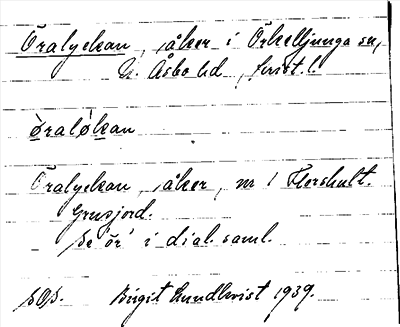 Öralyckan, åker i Örkelljunga sn,
N. Åsbo hd, Krist. l.
öralökan
Öralyckan, åker, nr 1 Flershult.
Grusjord.
Se 'ör' i dial. saml.
Birgit Lundkvist 1939.